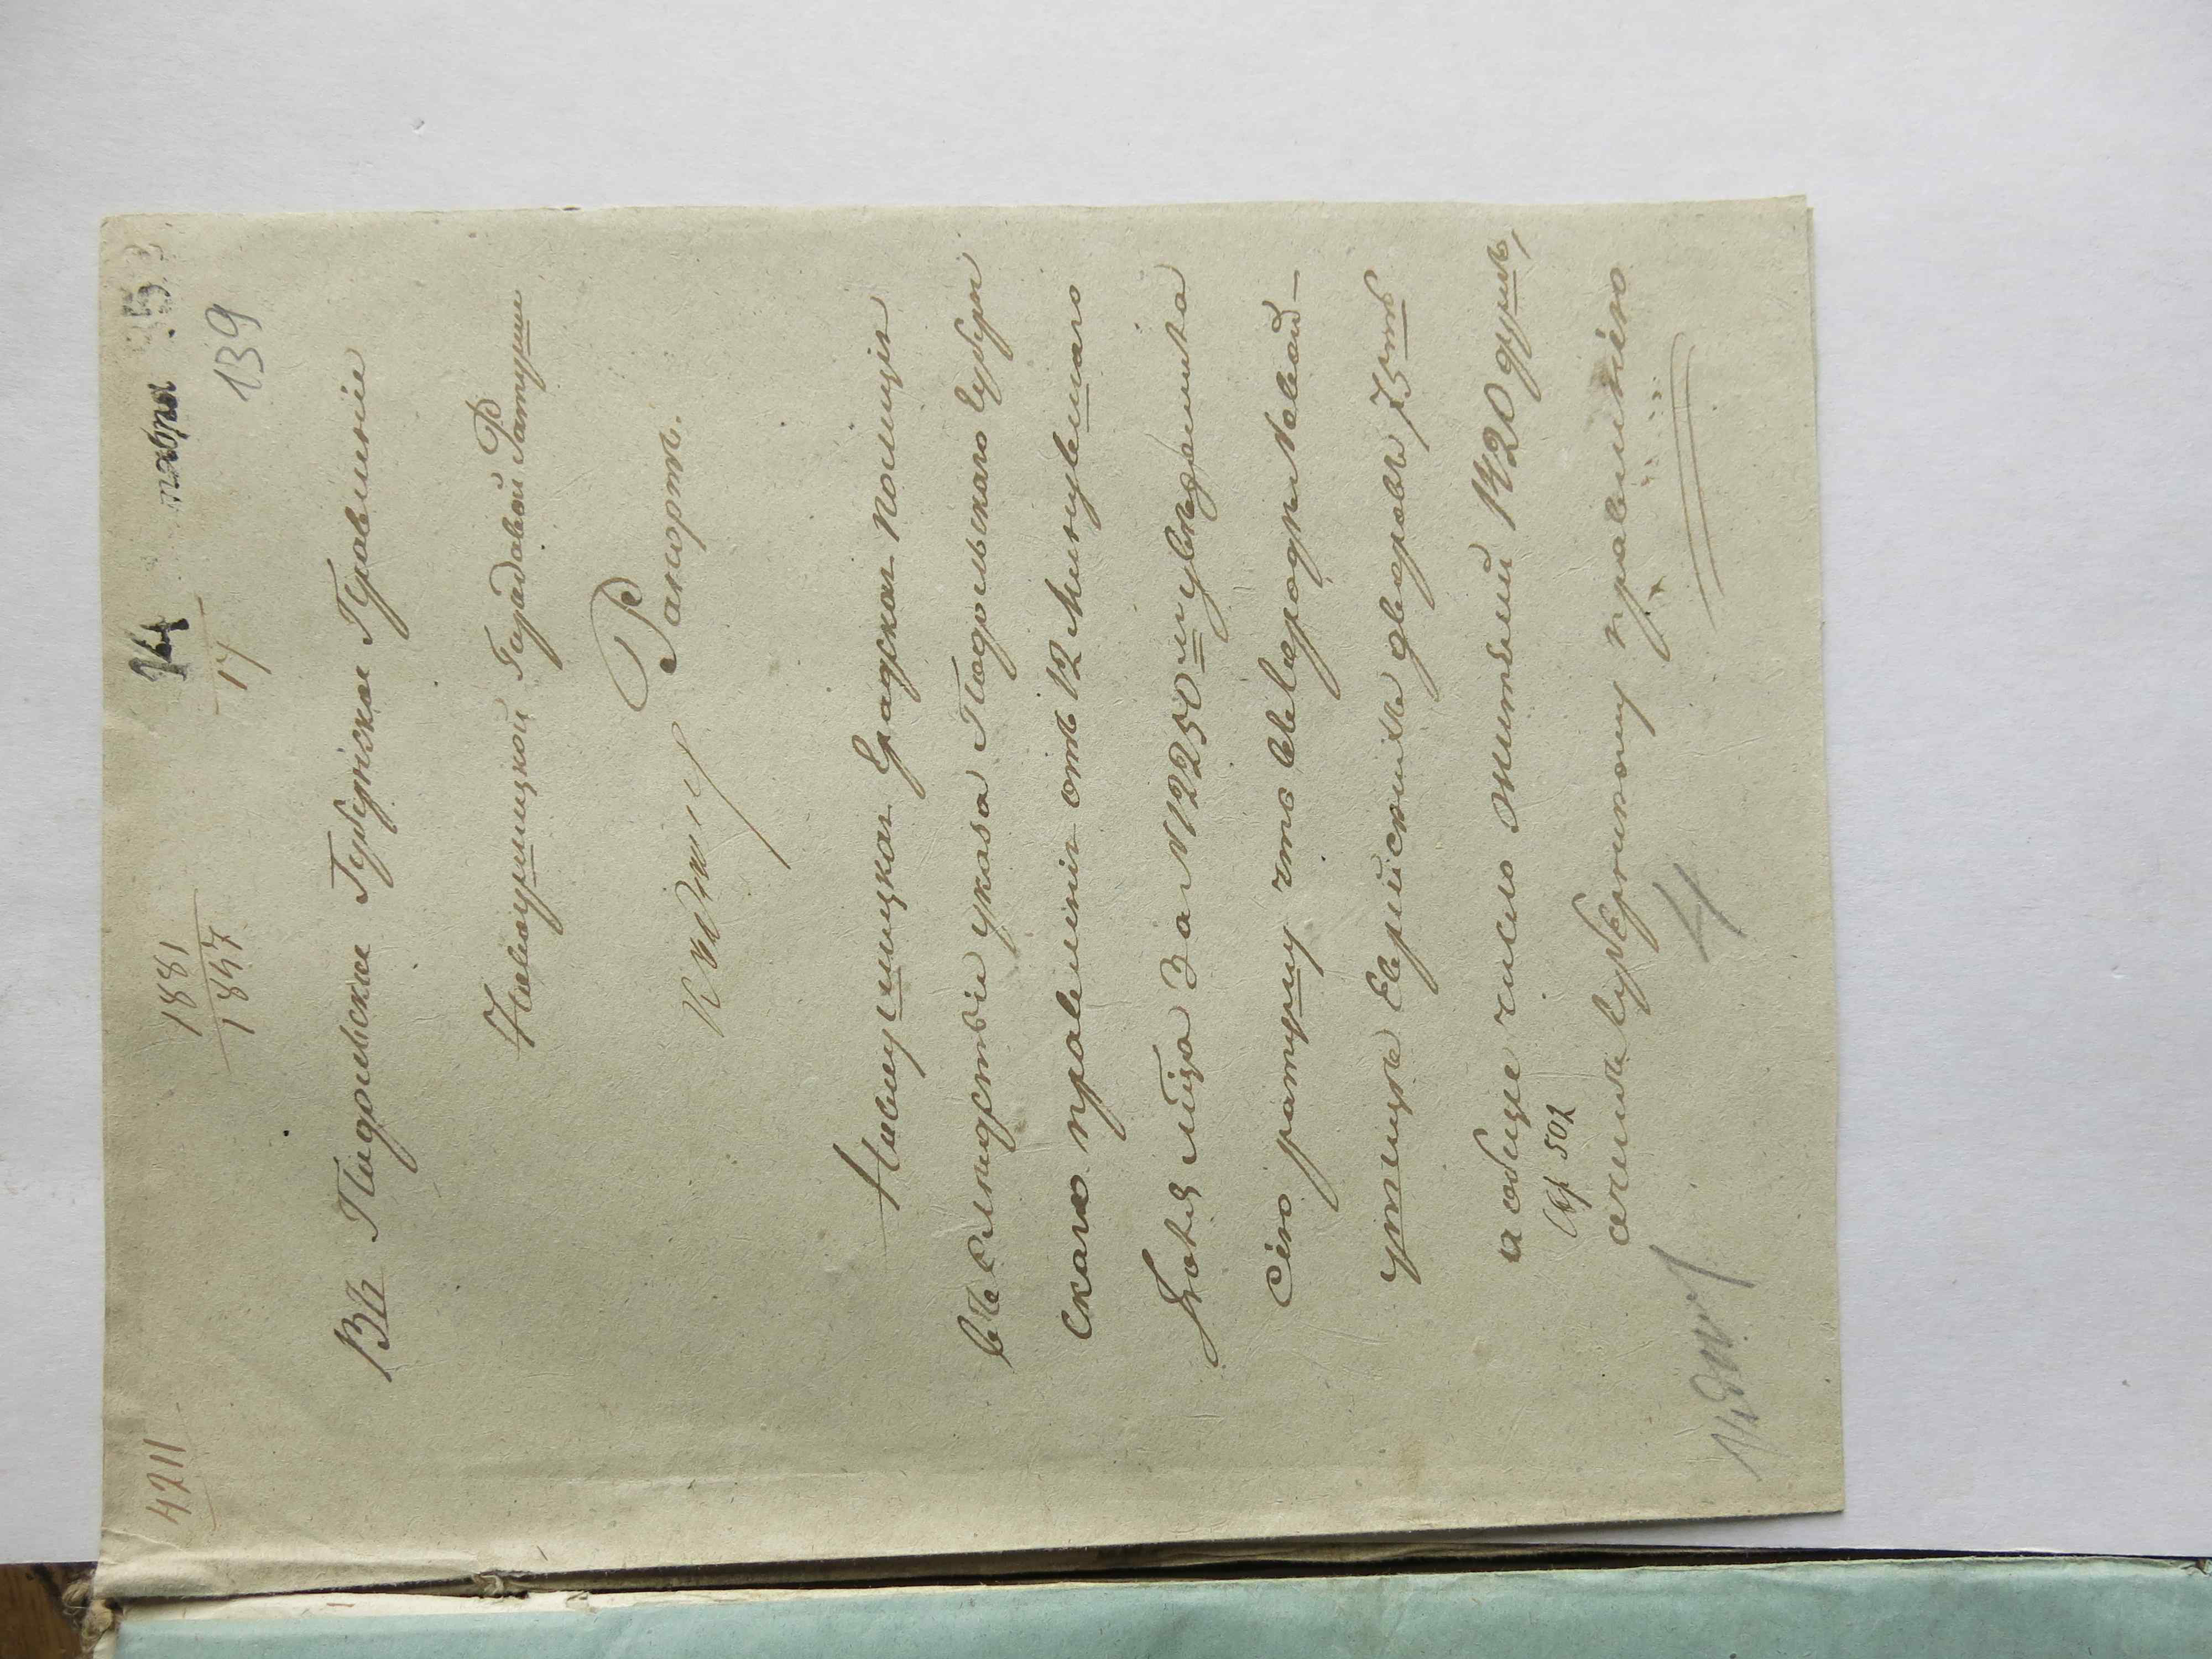 4211
1881
1847
17
ноября
139
Въ Подольское Губернское Правленіе
Новоушицкой Городовой Ратуши
Рапортъ.
Новоушицкая Градская полиція
въ слѣдствіе указа Подольскаго губерн
скаго правленія отъ 12 Минувшаго
за N 12250м увѣдомила
сію ратушу что въ городѣ Новой-
ушицѣ Еврейскихъ дворовъ 75ть
а вобще число жителей 1420 душъ,
о чемъ губернскому правленію
4